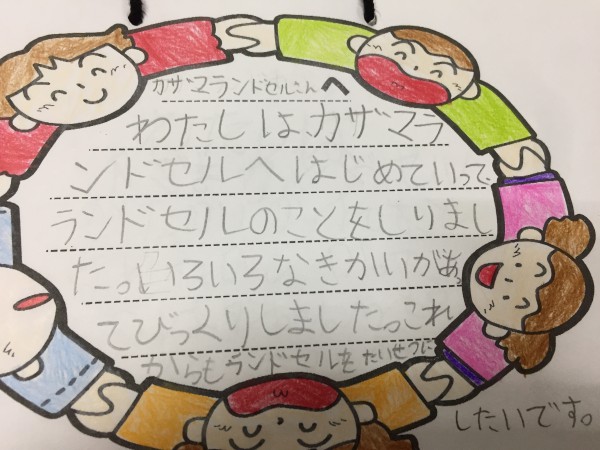 カザマランドセルさんへ
わたしはカザマラ
ンドセルへはじめていって、
ランドセルのことをしりまし
た。いろいろなきかいがあっ
てびっくりしました。これ
からもランドセルをたいせつに
したいです。